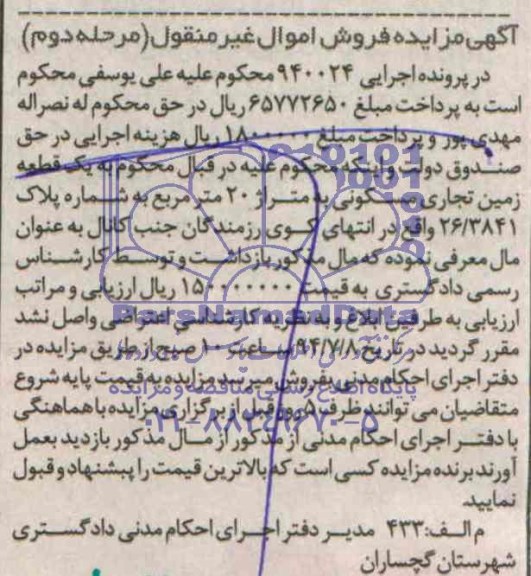 آگهی مزایده فروش اموال غیر منقول (مرحله دوم)
در پرونده اجرایی ۹۴۰۰۲۴ محکوم علیه علی یوسفی محکوم
است به پرداخت مبلغ ۶۵۷۷۲۶۵۰ ریال در حق محکوم له نصراله
مهدی پور و پرداخت مبلغ ۱۸۰۰۰۰۰ ریال هزینه اجرایی در حق
صندوق دولت و اینکه محکوم علیه در قبال محکوم به یک قطعه
زمین تجاری مسکونی به متراژ ۲۰ متر مربع به شماره پلاک
۲۶/۳۸۴۱ واقع در انتهای کوی رزمندگان جنب کانال به عنوان
مال معرفی نموده که مال مذکور بازداشت و توسط کارشناس
رسمی دادگستری به قیمت ۱۵۰۰۰۰۰۰۰ ریال ارزیابی و مراتب
ارزیابی به طرفین ابلاغ و به نظریه کارشناسی اعتراضی واصل نشد
مقرر گردید در تاریخ ۹۴/۷/۸ ساعت ۱۰ صبح از طریق مزایده در
دفتر اجرای احکام مدنی بفروش میرسد مزایده به قیمت پایه شروع
متقاضیان می توانند ظرف ۵ روز قبل از برگزاری مزایده با هماهنگی
با دفتر اجرای احکام مدنی از مذکور از مال مذکور بازدید بعمل
آورند برنده مزایده کسی است که بالاترین قیمت را پیشنهاد و قبول
نمایید
م الف: ۴۳۳ مدیر دفتر اجرای احکام مدنی دادگستری
شهرستان گچساران
ParsNamadData
پایگاه اطلاع رسانی مناقصه و مزایده
۰۲۱-۸۸۳۴۹۶۷۰-۵